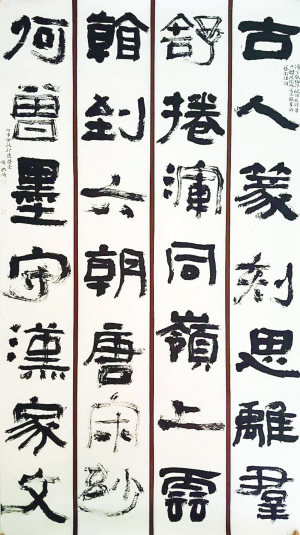 古人篆刻思離群
舒捲渾同嶺上雲
看到六朝唐宋玅
何曾墨守漢家文